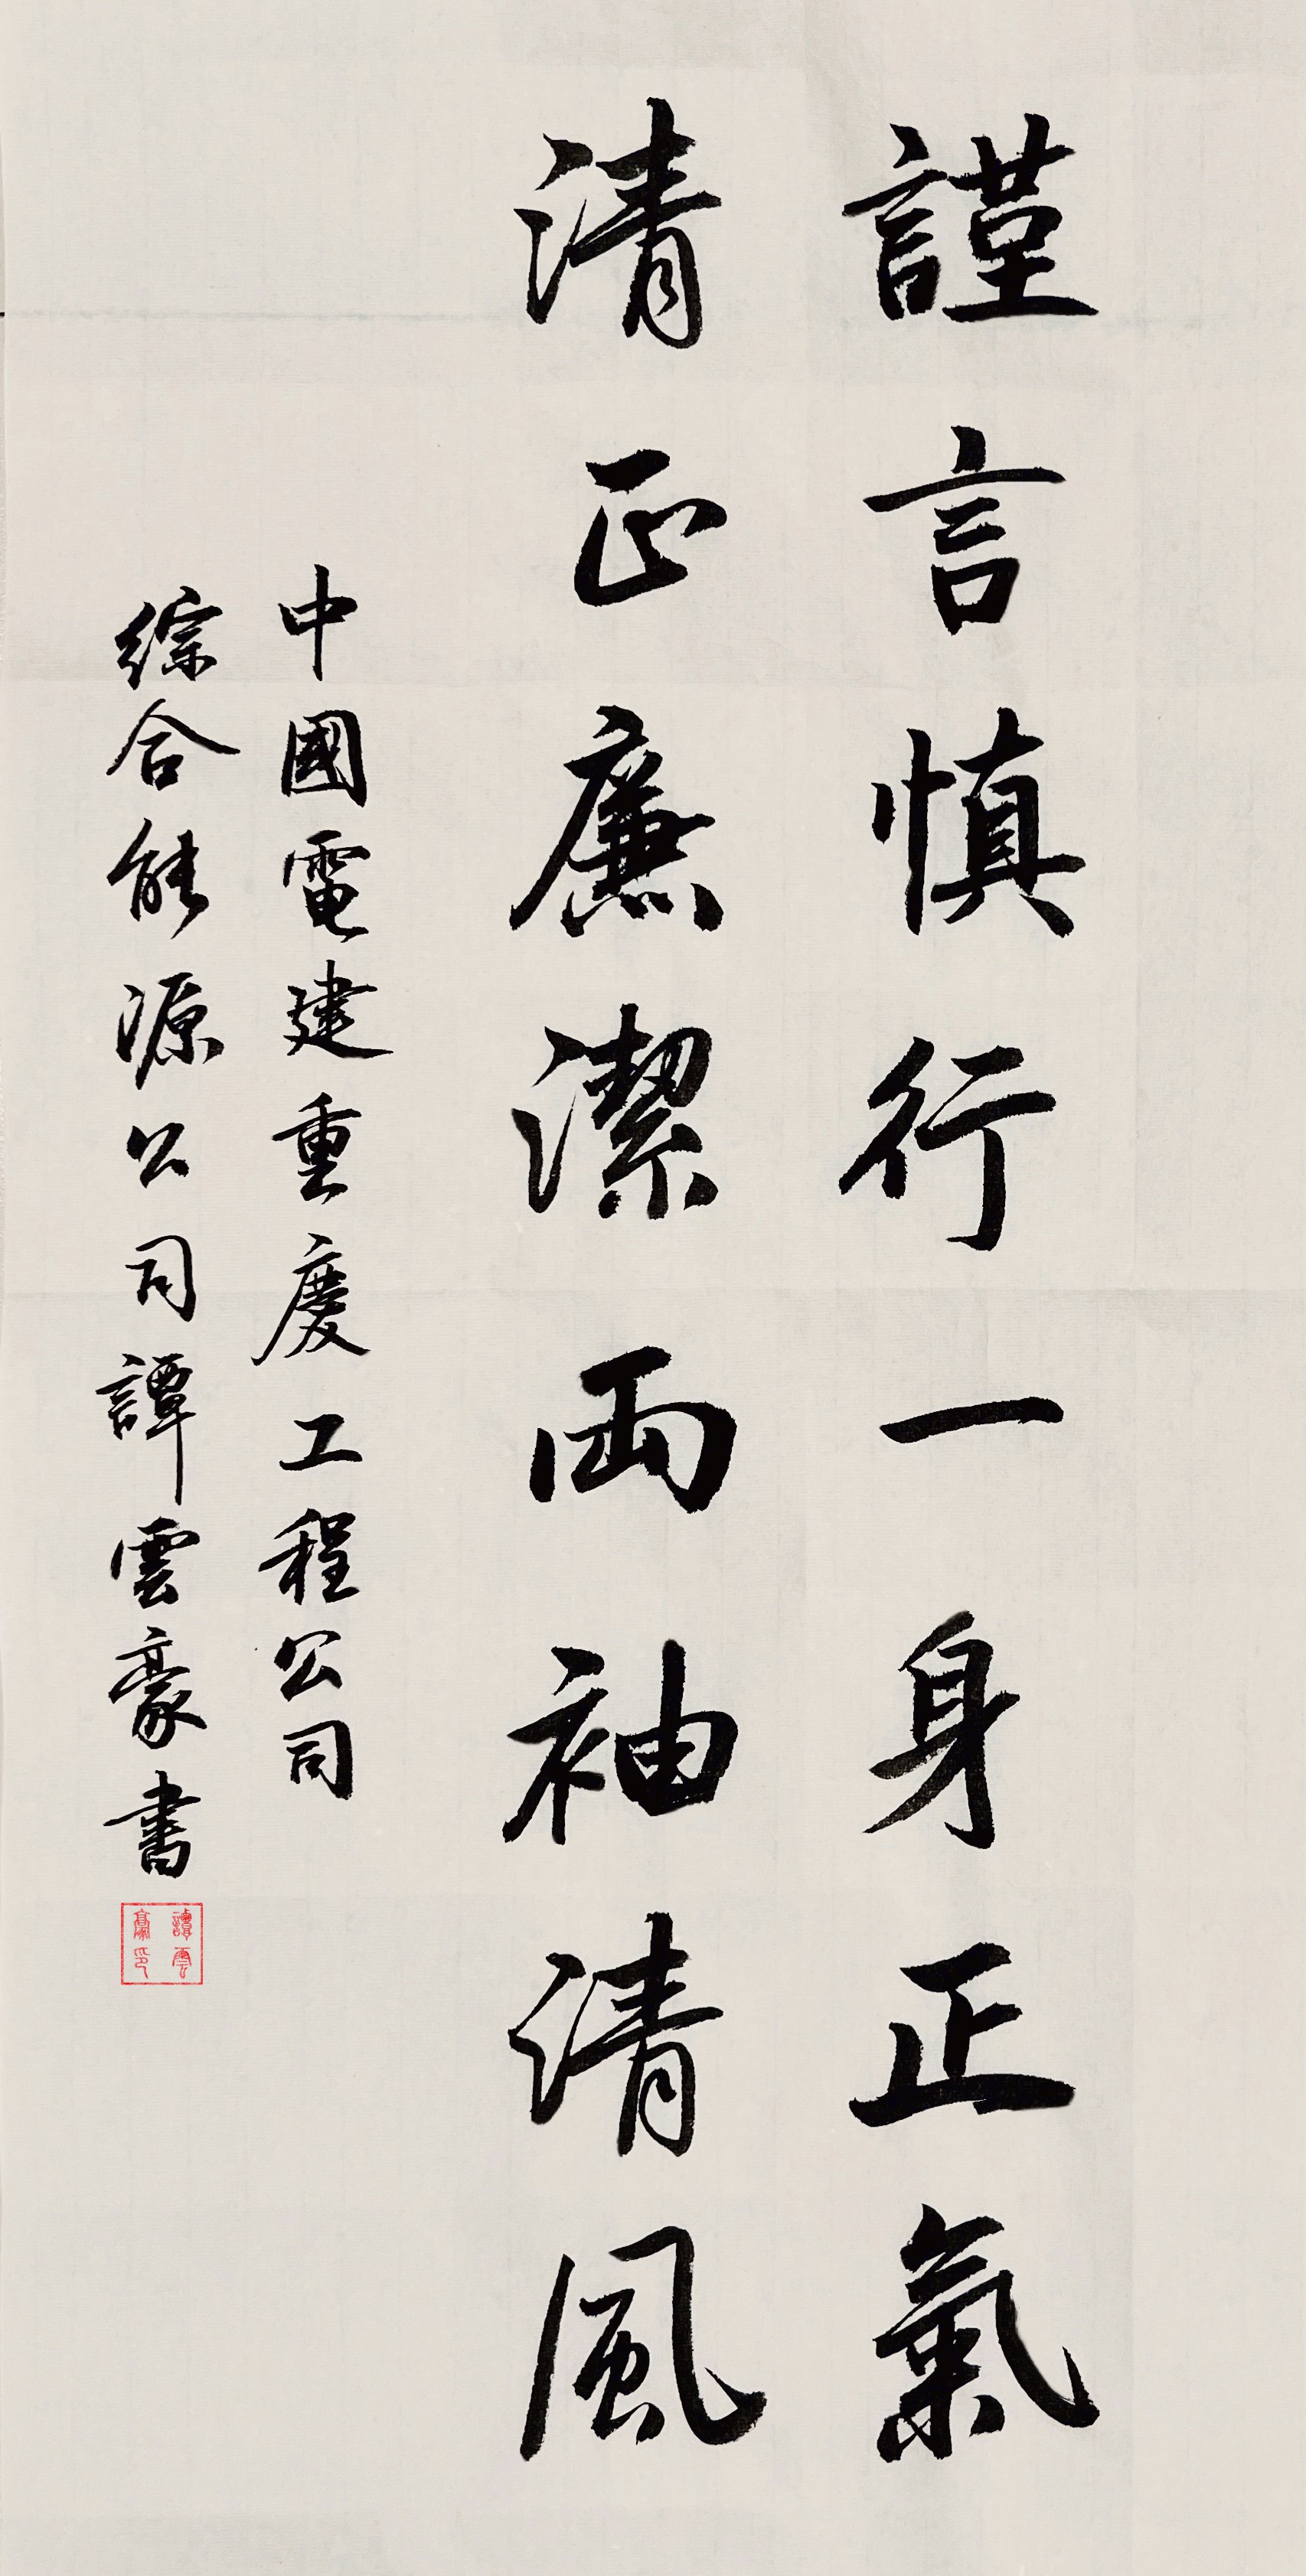 謹言慎行一身正氣
清正廉潔兩袖清風
中國電建重慶工程公司
綜合能源公司譚雲豪書
譚雲
豪印